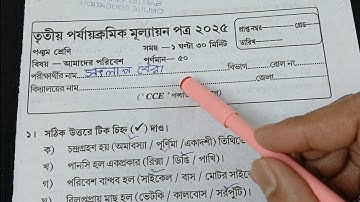 তৃতীয় পর্যায়ক্রমিক মূল্যায়ন পত্র ২০২৫
প্রাপ্ত নম্বর গ্রেড
পঞ্চম শ্রেণি সময় —১ ঘণ্টা ৩০ মিনিট
তারিখ
বিষয় — আমাদের পরিবেশ পূর্ণমান — ৫০
পরীক্ষার্থীর নাম বিভাগ রোল নং
বিদ্যালয়ের নাম জেলা
('CCE'
১। সঠিক উত্তরে টিক চিহ্ন (✓) দাও।
ক) চন্দ্রগ্রহণ হয় (অমাবস্যা / পূর্ণিমা /একাদশী) তিথিতে
খ) পানসি হল একপ্রকার (রিক্সা / ডিঙি / পাখি)।
গ) পরিবেশ বান্ধব হল (সাইকেল / বাস / মোটর সাইকেল
ঘ) বিলুপ্তপ্রায় মাছ হল (ভেটকি / কালবোস / সরপুঁটি)।